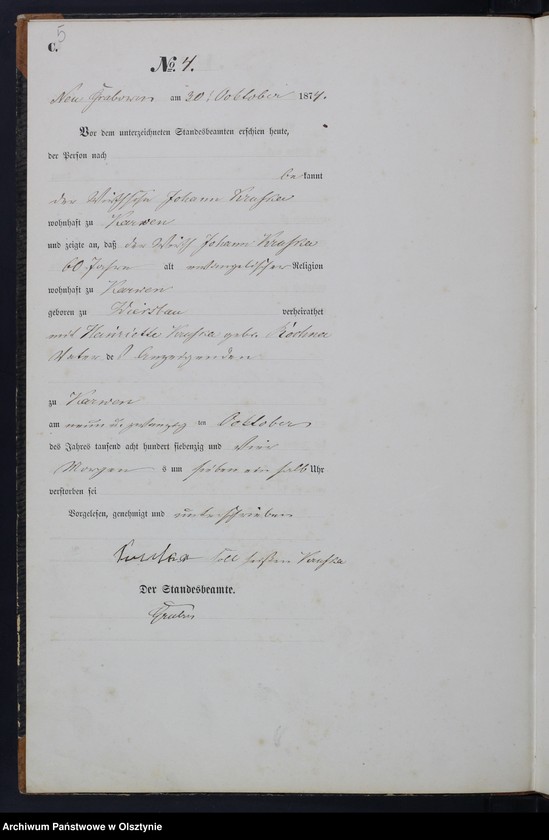 5
C.
No. 4.
Neu Grabowen am 30t Ooktober 1874.
Vor dem unterzeichneten Standesbeamten erschien heute,
der Person nach
be kannt
der Wirthssohn Johann Kruska
wohnhaft zu Karwen
und zeigte an, daß der Wirth Johann Kruska
60 Jahre alt evangelischer Religion
wohnhaft zu Karwen
geboren zu Wiersbau verheirathet
mit Henriette Kruska geb.
Vater des Anzeigenden
zu Karwen
am neun u. zwanzig ten Ooktober
des Jahres tausend acht hundert siebenzig und vier
Morgen s um sieben ein halb Uhr
verstorben sei
Vorgelesen, genehmigt und unterschrieben
soll heißen Kruska
Der Standesbeamte.
Archiwum Państwowe w Olsztynie